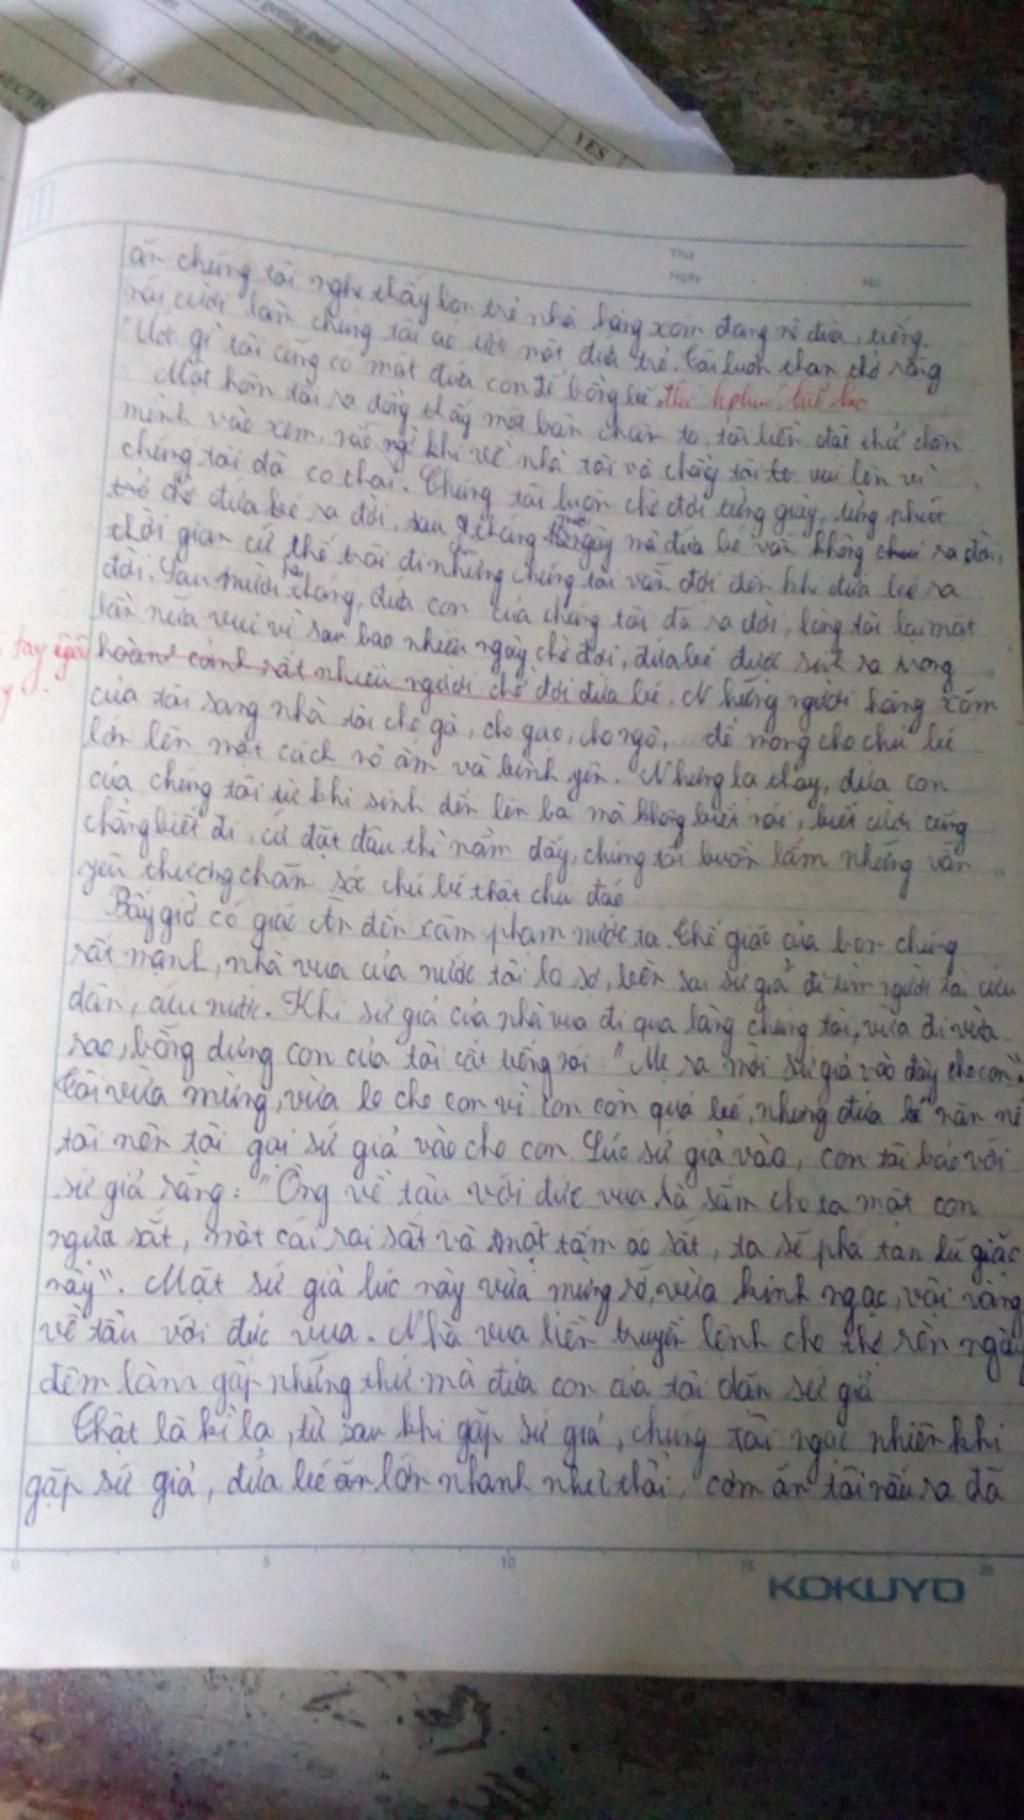 getting paid
SECTION
YES
Thứ
Ngày
No.
ăn chúng tôi nghe thấy bọn trẻ nhà hàng xóm đang nô đùa, tiếng
nói cười làm chúng tôi ao ước một đứa trẻ. Tôi luôn than thở rằng
"Ước gì tôi cũng có một đứa con để bồng bế, thì
Một hôm tôi ra đồng thấy một bàn chân to, tôi liền đặt thử chân
mình vào xem, nào ngờ khi về nhà tôi và chồng tôi vui lên vì
chúng tôi đã có thai. Chúng tôi luôn chờ đợi từng giây, từng phút
chờ đứa bé ra đời, sau 9 tháng ngày mà đứa bé vẫn không ra đời,
thời gian cứ thế trôi đi nhưng chúng tôi vẫn đợi đến khi đứa bé ra
đời. Sau mười hai tháng, đứa con của chúng tôi đã ra đời, lòng tôi lại một
lần nữa vui vì sau bao nhiêu ngày chờ đợi, đứa bé được sinh ra trong
tay
hoàn cảnh rất nhiều người chờ đợi đứa bé. Những người hàng xóm
của tôi sang nhà tôi cho gà, cho gạo, cho ngô,... để mong cho chú bé
lớn lên một cách no ấm và bình yên. Nhưng lạ thay, đứa con
của chúng tôi từ khi sinh đến lên ba mà không biết nói, biết cười cũng
chẳng biết đi, cứ đặt đâu thì nằm đấy, chúng tôi buồn lắm nhưng vẫn
yêu thương chăm sóc chú bé thật chu đáo
Bấy giờ có giặc Ân đến xâm phạm nước ta. Thế giặc của bọn chúng
rất mạnh, nhà vua của nước tôi lo sợ, liền sai sứ giả đi tìm người tài cứu
dân, cứu nước. Khi sứ giả của nhà vua đi qua làng chúng tôi, vừa đi vừa
rao, bỗng dưng con của tôi cất tiếng nói "Mẹ ra mời sứ giả vào đây cho con".
Tôi vừa mừng, vừa lo cho con vì con còn quá bé, nhưng đứa bé năn nỉ
tôi nên tôi gọi sứ giả vào cho con. Lúc sứ giả vào, con tôi bảo với
sứ giả rằng: "Ông về tâu với đức vua là sắm cho ta một con
ngựa sắt, một cái roi sắt và một tấm áo sắt, ta sẽ phá tan lũ giặc
này". Mặt sứ giả lúc này vừa mừng rỡ, vừa kinh ngạc, vội vàng
về tâu với đức vua. Nhà vua liền truyền lệnh cho thợ rèn ngày
đêm làm gấp những thứ mà đứa con của tôi dặn sứ giả
Thật là kì lạ, từ sau khi gặp sứ giả, chúng tôi ngạc nhiên khi
gặp sứ giả, đứa bé ăn lớn nhanh như thổi, cơm ăn tôi nấu ra đã
0 5 10 15 20
KOKUYO